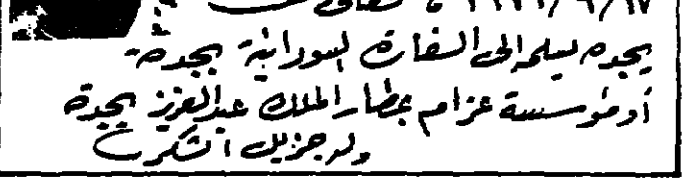 ١٧/٦/
يجده يسلمه الى السفارة السودانية بجدة
أو مؤسسة عزام بمطار الملك عبدالعزيز بجدة
وله جزيل الشكر